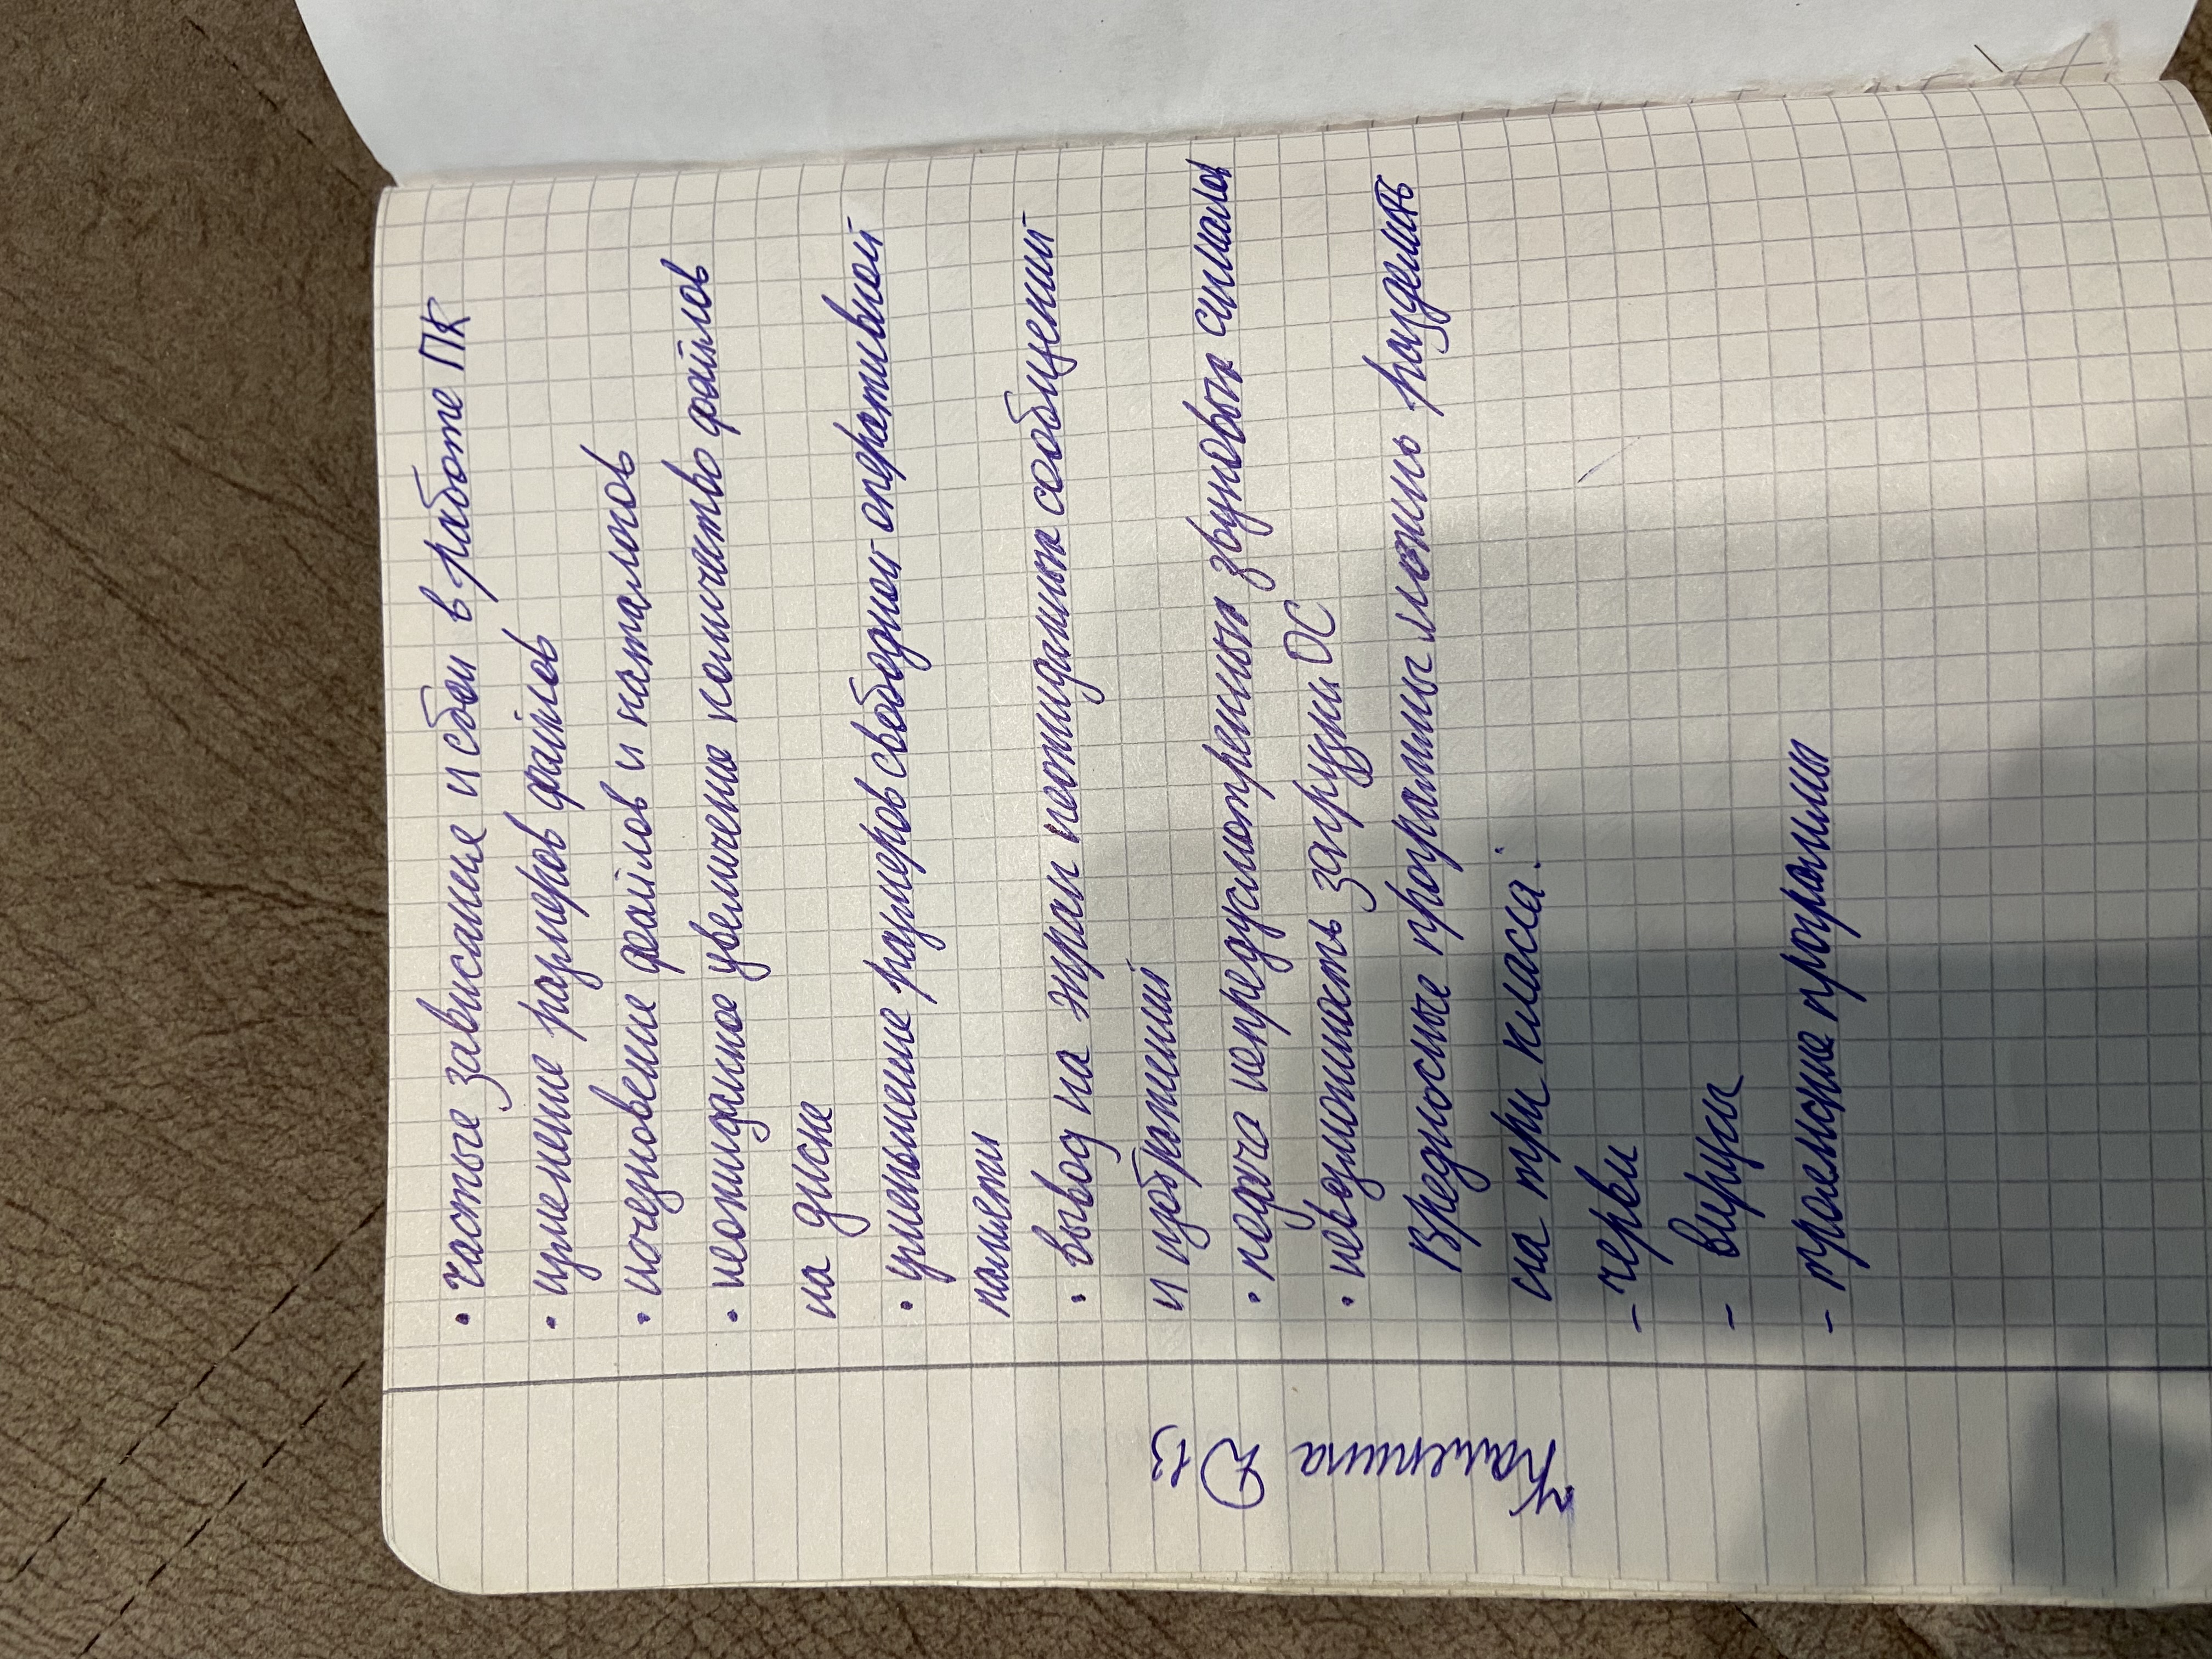 • частые зависание и сбои в работе ПК
• изменение размеров файлов
• исчезновение файлов и каталогов
• неожиданное увеличение количество файлов
на диске
• уменьшение размеров свободной оперативной
памяти
• вывод на экран неожиданных сообщений
и изображений
• подача непредусмотренных звуковых сигналов
• невозможность загрузки ОС
Вредносные программы можно разделить
на три класса:
- черви
- вирусы
- троянские программы